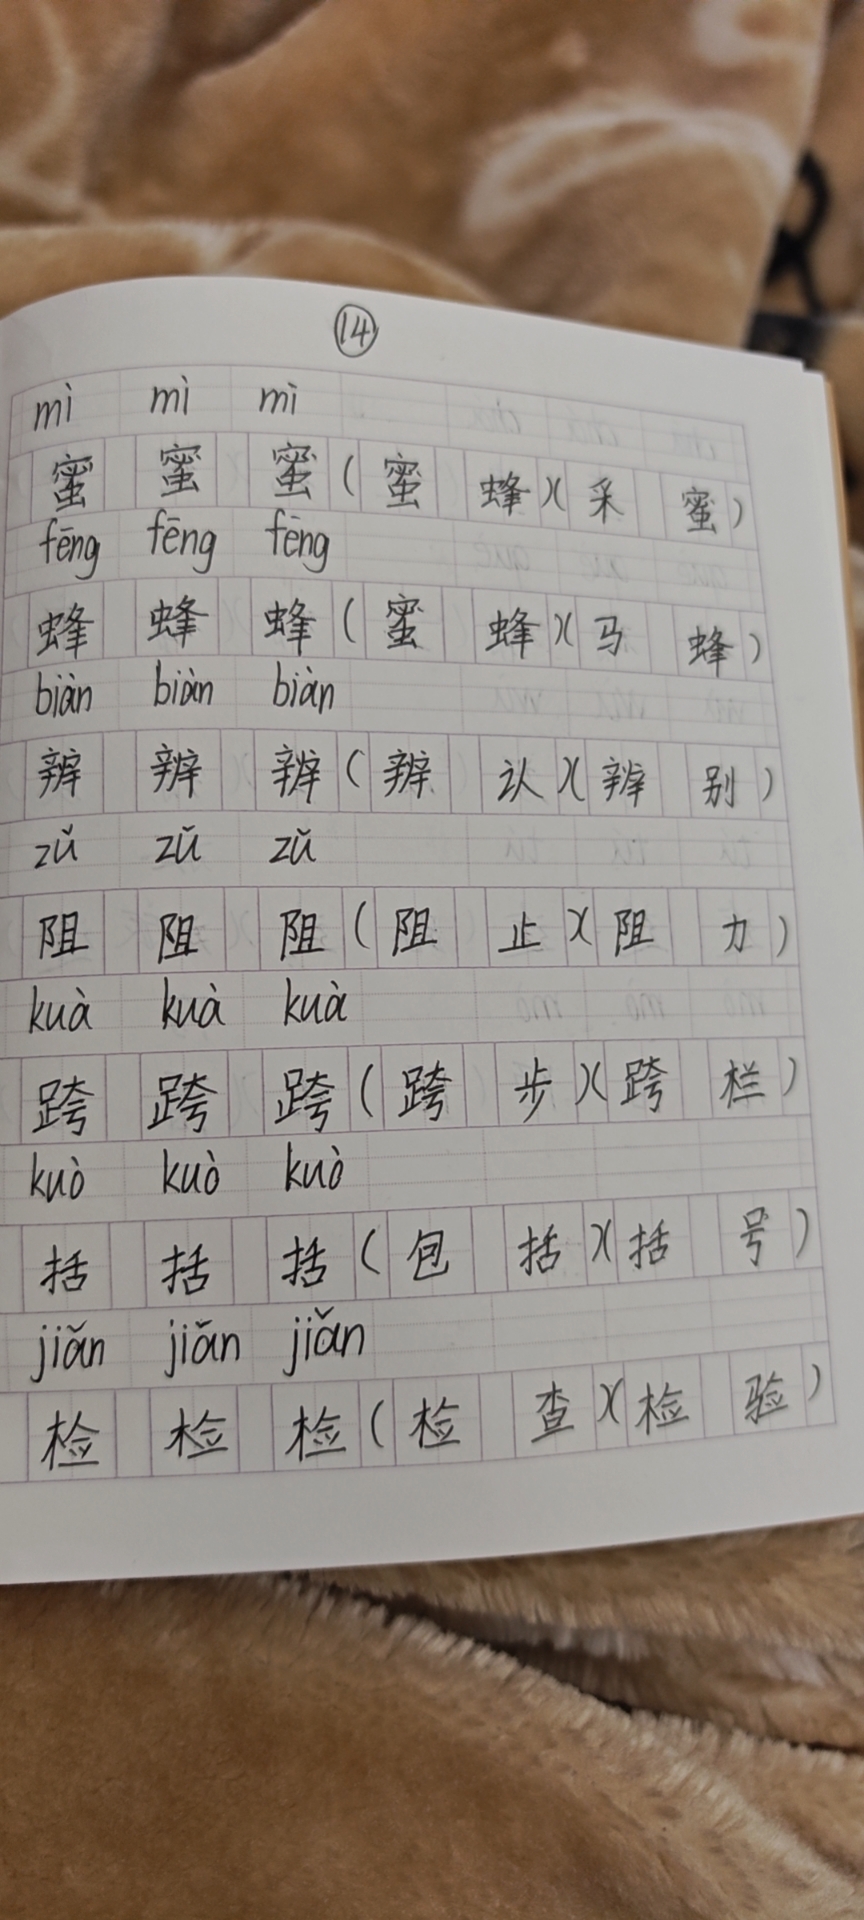 14
mì mì mì
蜜 蜜 蜜(蜜 蜂)(采 蜜)
fēng fēng fēng
蜂 蜂 蜂(蜜 蜂)(马 蜂)
biàn biàn biàn
辨 辨 辨(辨 认)(辨 别)
zǔ zǔ zǔ
阻 阻 阻(阻 止)(阻 力)
kuà kuà kuà
跨 跨 跨(跨 步)(跨 栏)
kuò kuò kuò
括 括 括(包 括)(括 号)
jiǎn jiǎn jiǎn
检 检 检(检 查)(检 验)